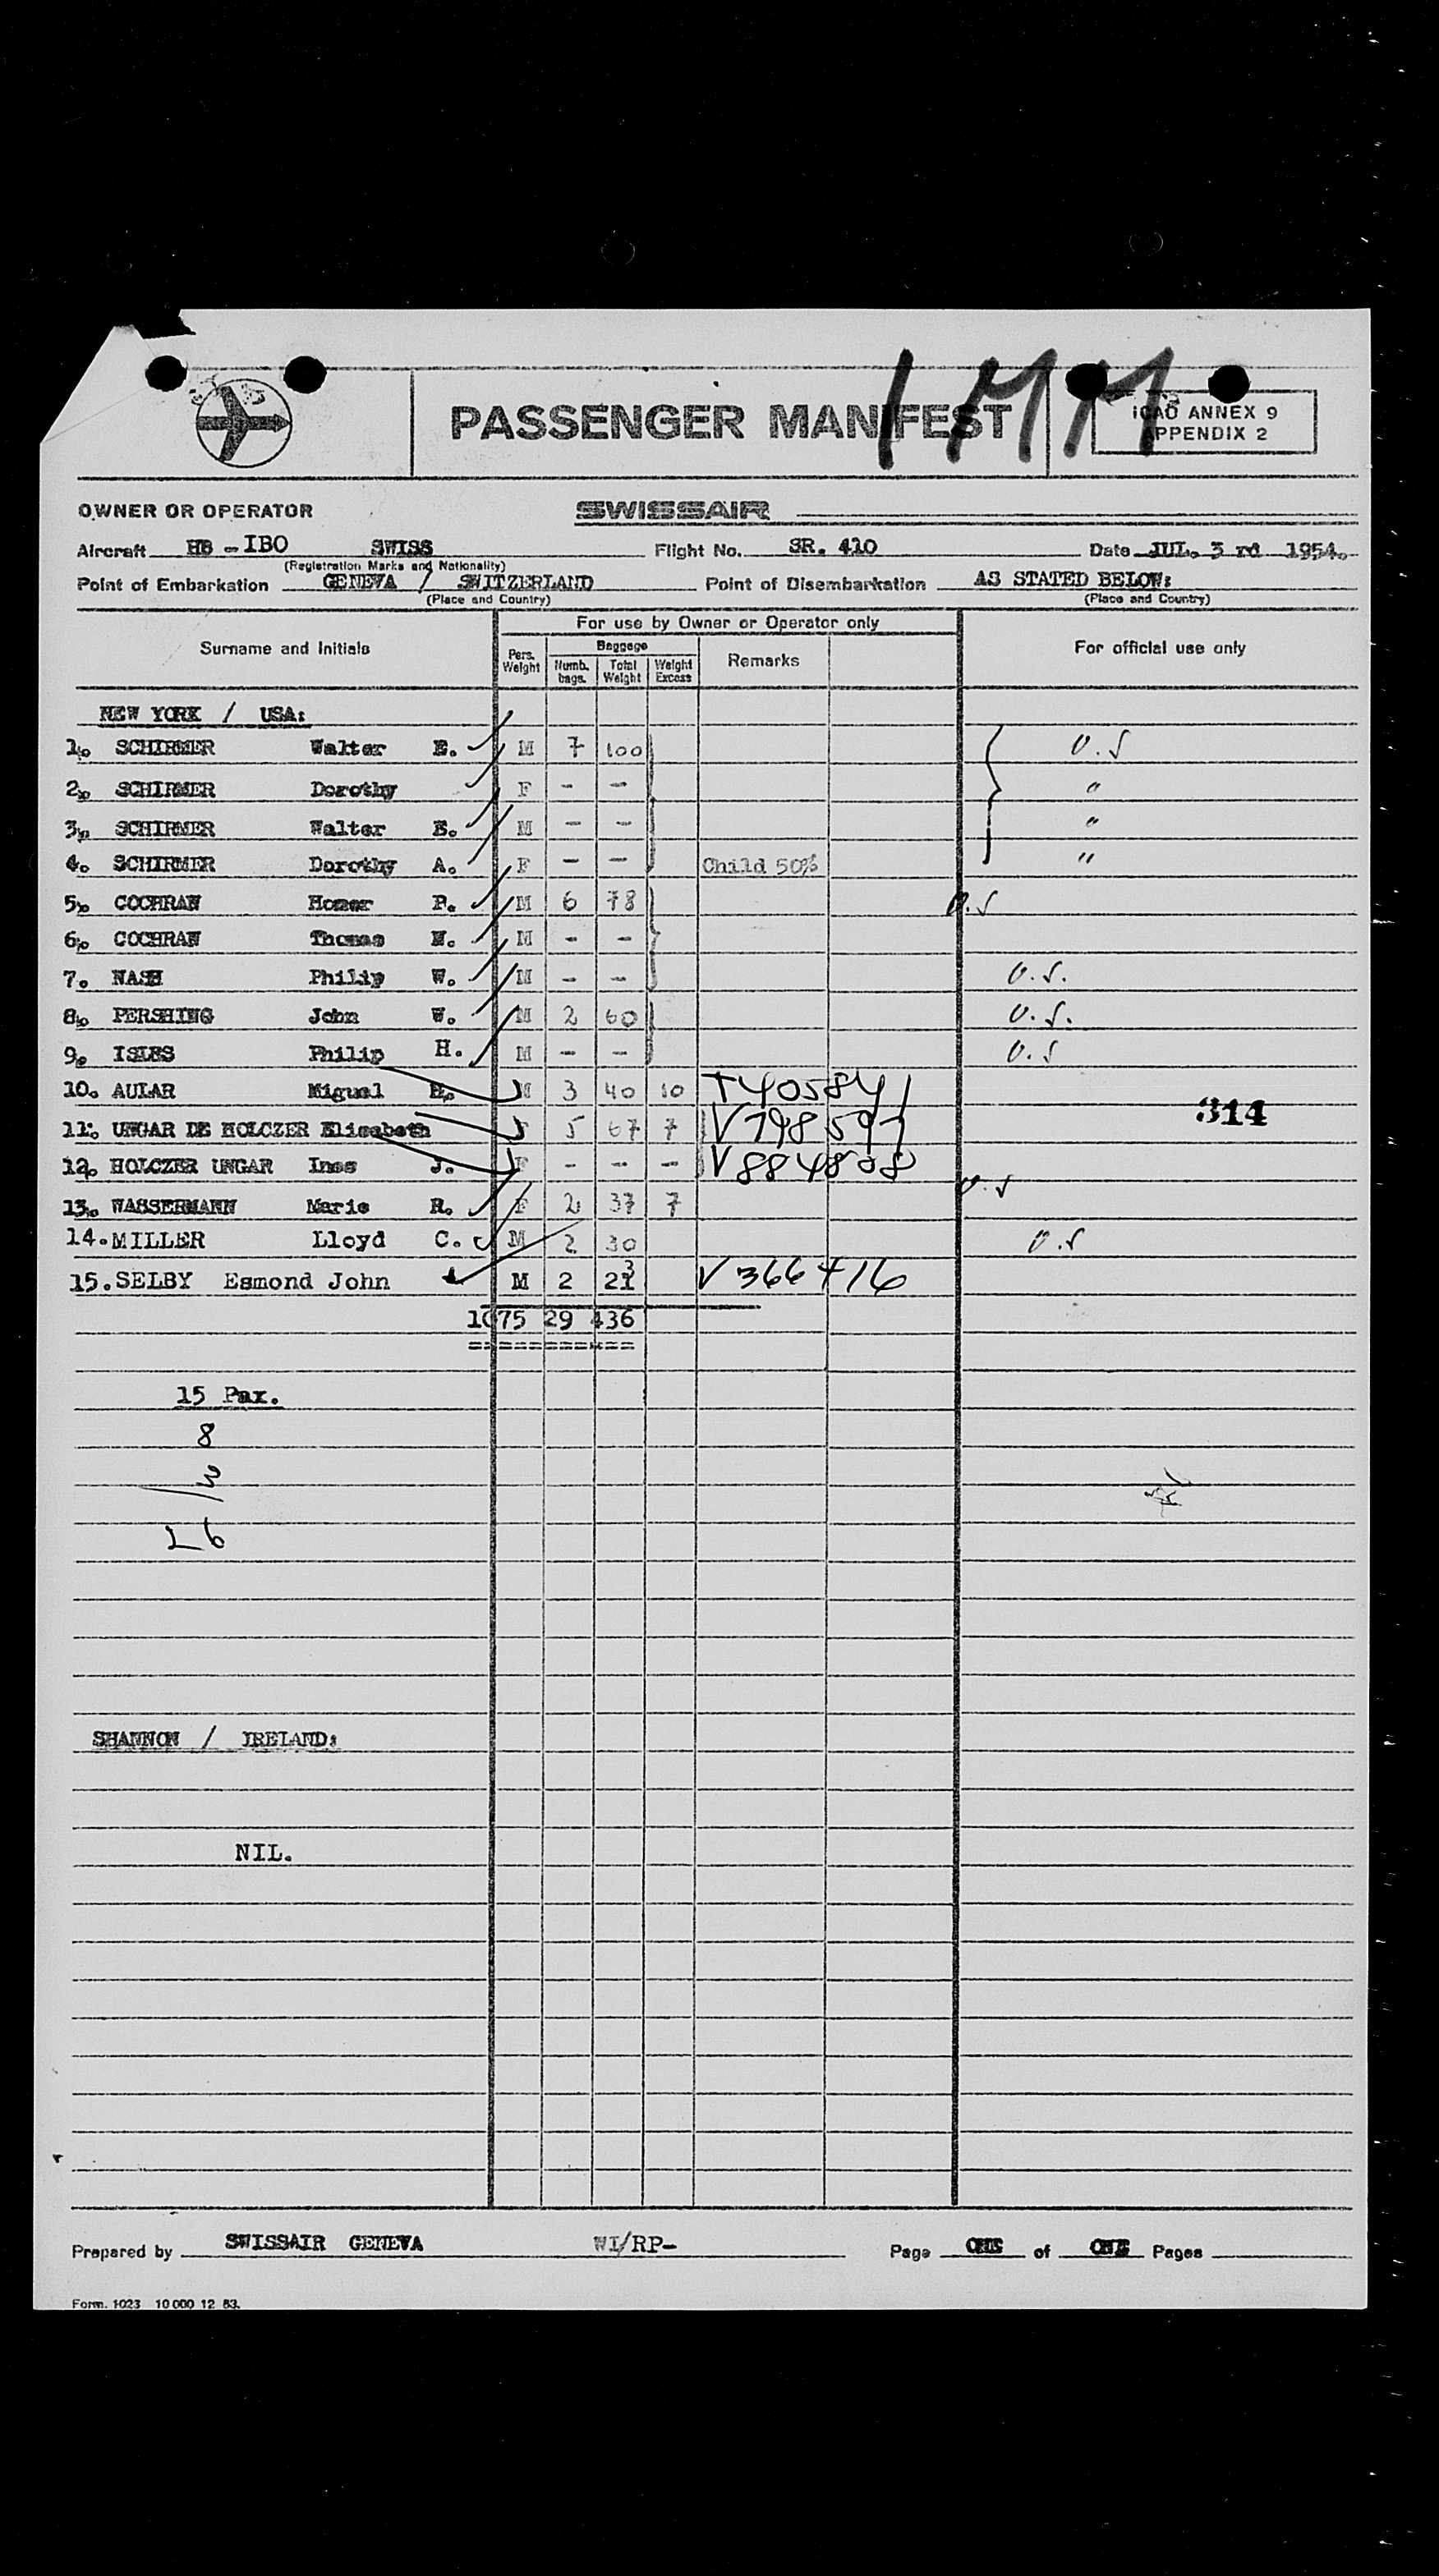 PASSENGER MANIFEST
ICAO ANNEX 9
APPENDIX 2
OWNER OR OPERATOR SWISSAIR
Aircraft HB - IBO SWISS Flight No. SR. 410 Date JUL. 3 rd 1954.
(Registration Marks and Nationality)
Point of Embarkation GENEVA / SWITZERLAND Point of Disembarkation AS STATED BELOW:
(Place and Country) (Place and Country)
For use by Owner or Operator only
Surname and Initials Pers. Weight Baggage Numb. bags. Total Weight Weight Excess Remarks For official use only
NEW YORK / USA:
1. SCHIRMER Walter E. M 7 100 U.S
2. SCHIRMER Dorothy F - - "
3. SCHIRMER Walter E. M - - "
4. SCHIRMER Dorothy A. F - - Child 50% "
5. COCHRAN Homer P. M 6 78 U.S
6. COCHRAN Thomas N. M - -
7. NASH Philip W. M - - U.S.
8. PERSHING John W. M 2 60 U.S.
9. ISLES Philip H. M - - U.S
10. AULAR Miguel M 3 40 10 T405841
314
11. UNGAR DE HOLCZER Elisabeth F 5 67 7 V798597
12. HOLCZER UNGAR Ines J. F - - - V884808
13. WASSERMANN Marie R. F 2 37 7 U.S
14. MILLER Lloyd C. M 2 30 U.S
15. SELBY Esmond John M 2 23 V366416
1075 29 436
15 Pax.
8
L6
SHANNON / IRELAND:
NIL.
Prepared by SWISSAIR GENEVA WI/RP- Page ONE of ONE Pages
Form. 1023 10 000 12 53.